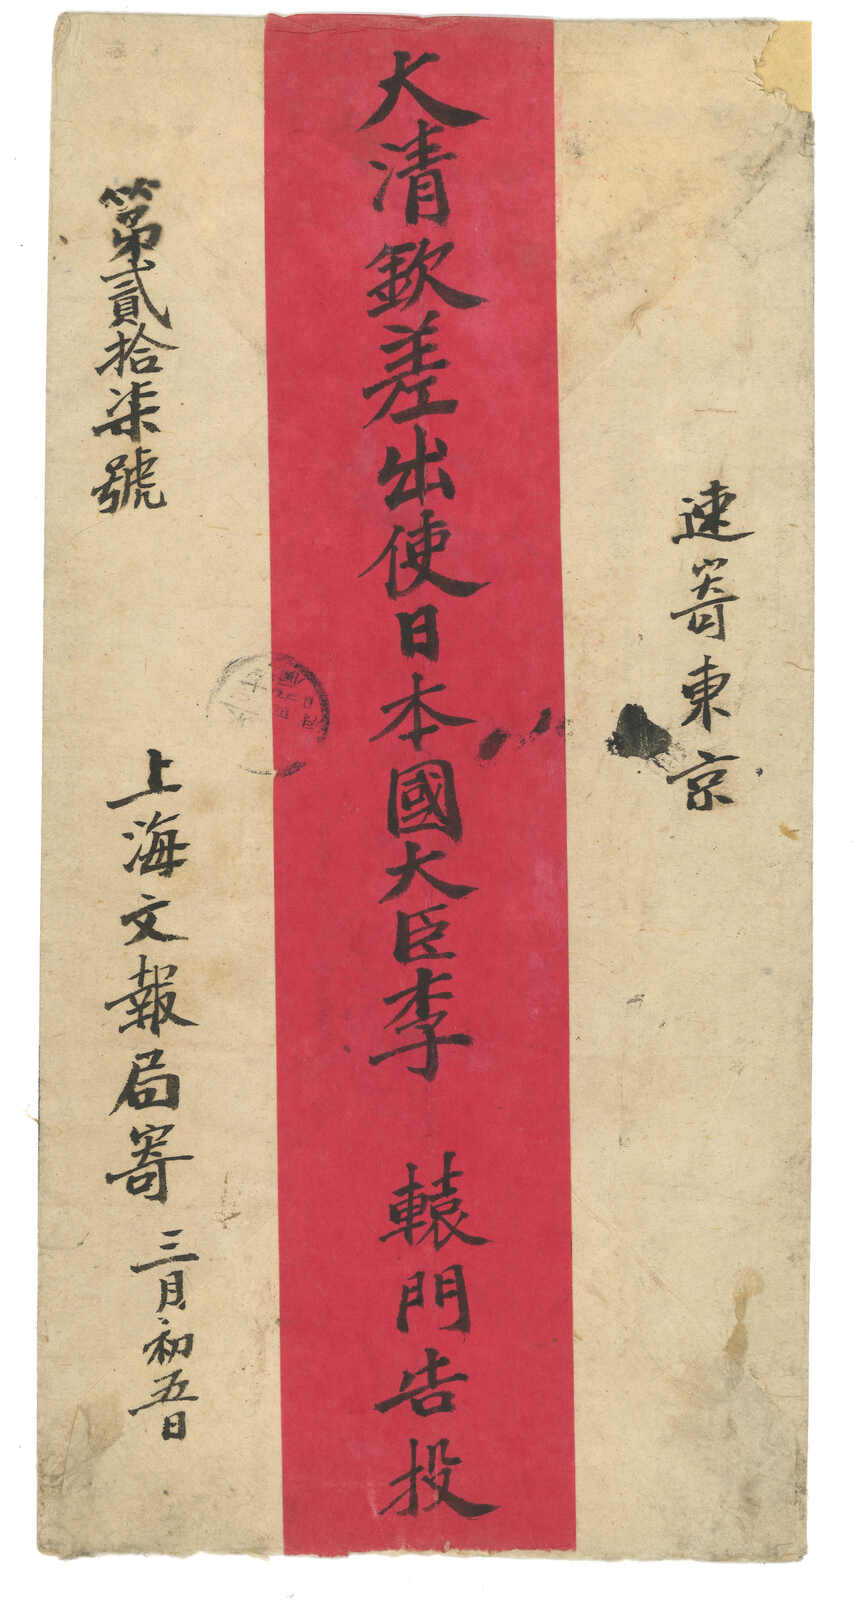 速寄東京
大清欽差出使日本國大臣李 轅門告投
第貳拾柒號
上海文報局寄 三月初五日